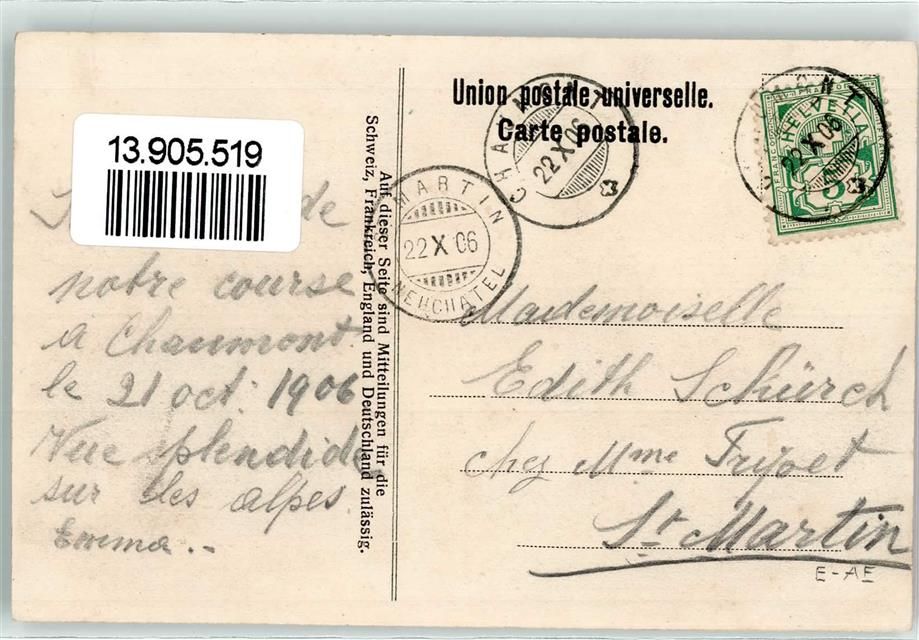 Union postale universelle.
Carte postale.
13.905.519
CHAUMONT
22 X 06
CHAUMONT
22 X 06
HELVETIA
5
MARTIN
22 X 06
NEUCHATEL
Auf dieser Seite sind Mitteilungen für die
Schweiz, Frankreich, England und Deutschland zulässig.
de
notre course
à Chaumont
le 21 oct: 1906
Vue splendide
sur les alpes
Emma.-
Mademoiselle
Edith Schürch
chez Mme Tripet
St Martin
E-AE